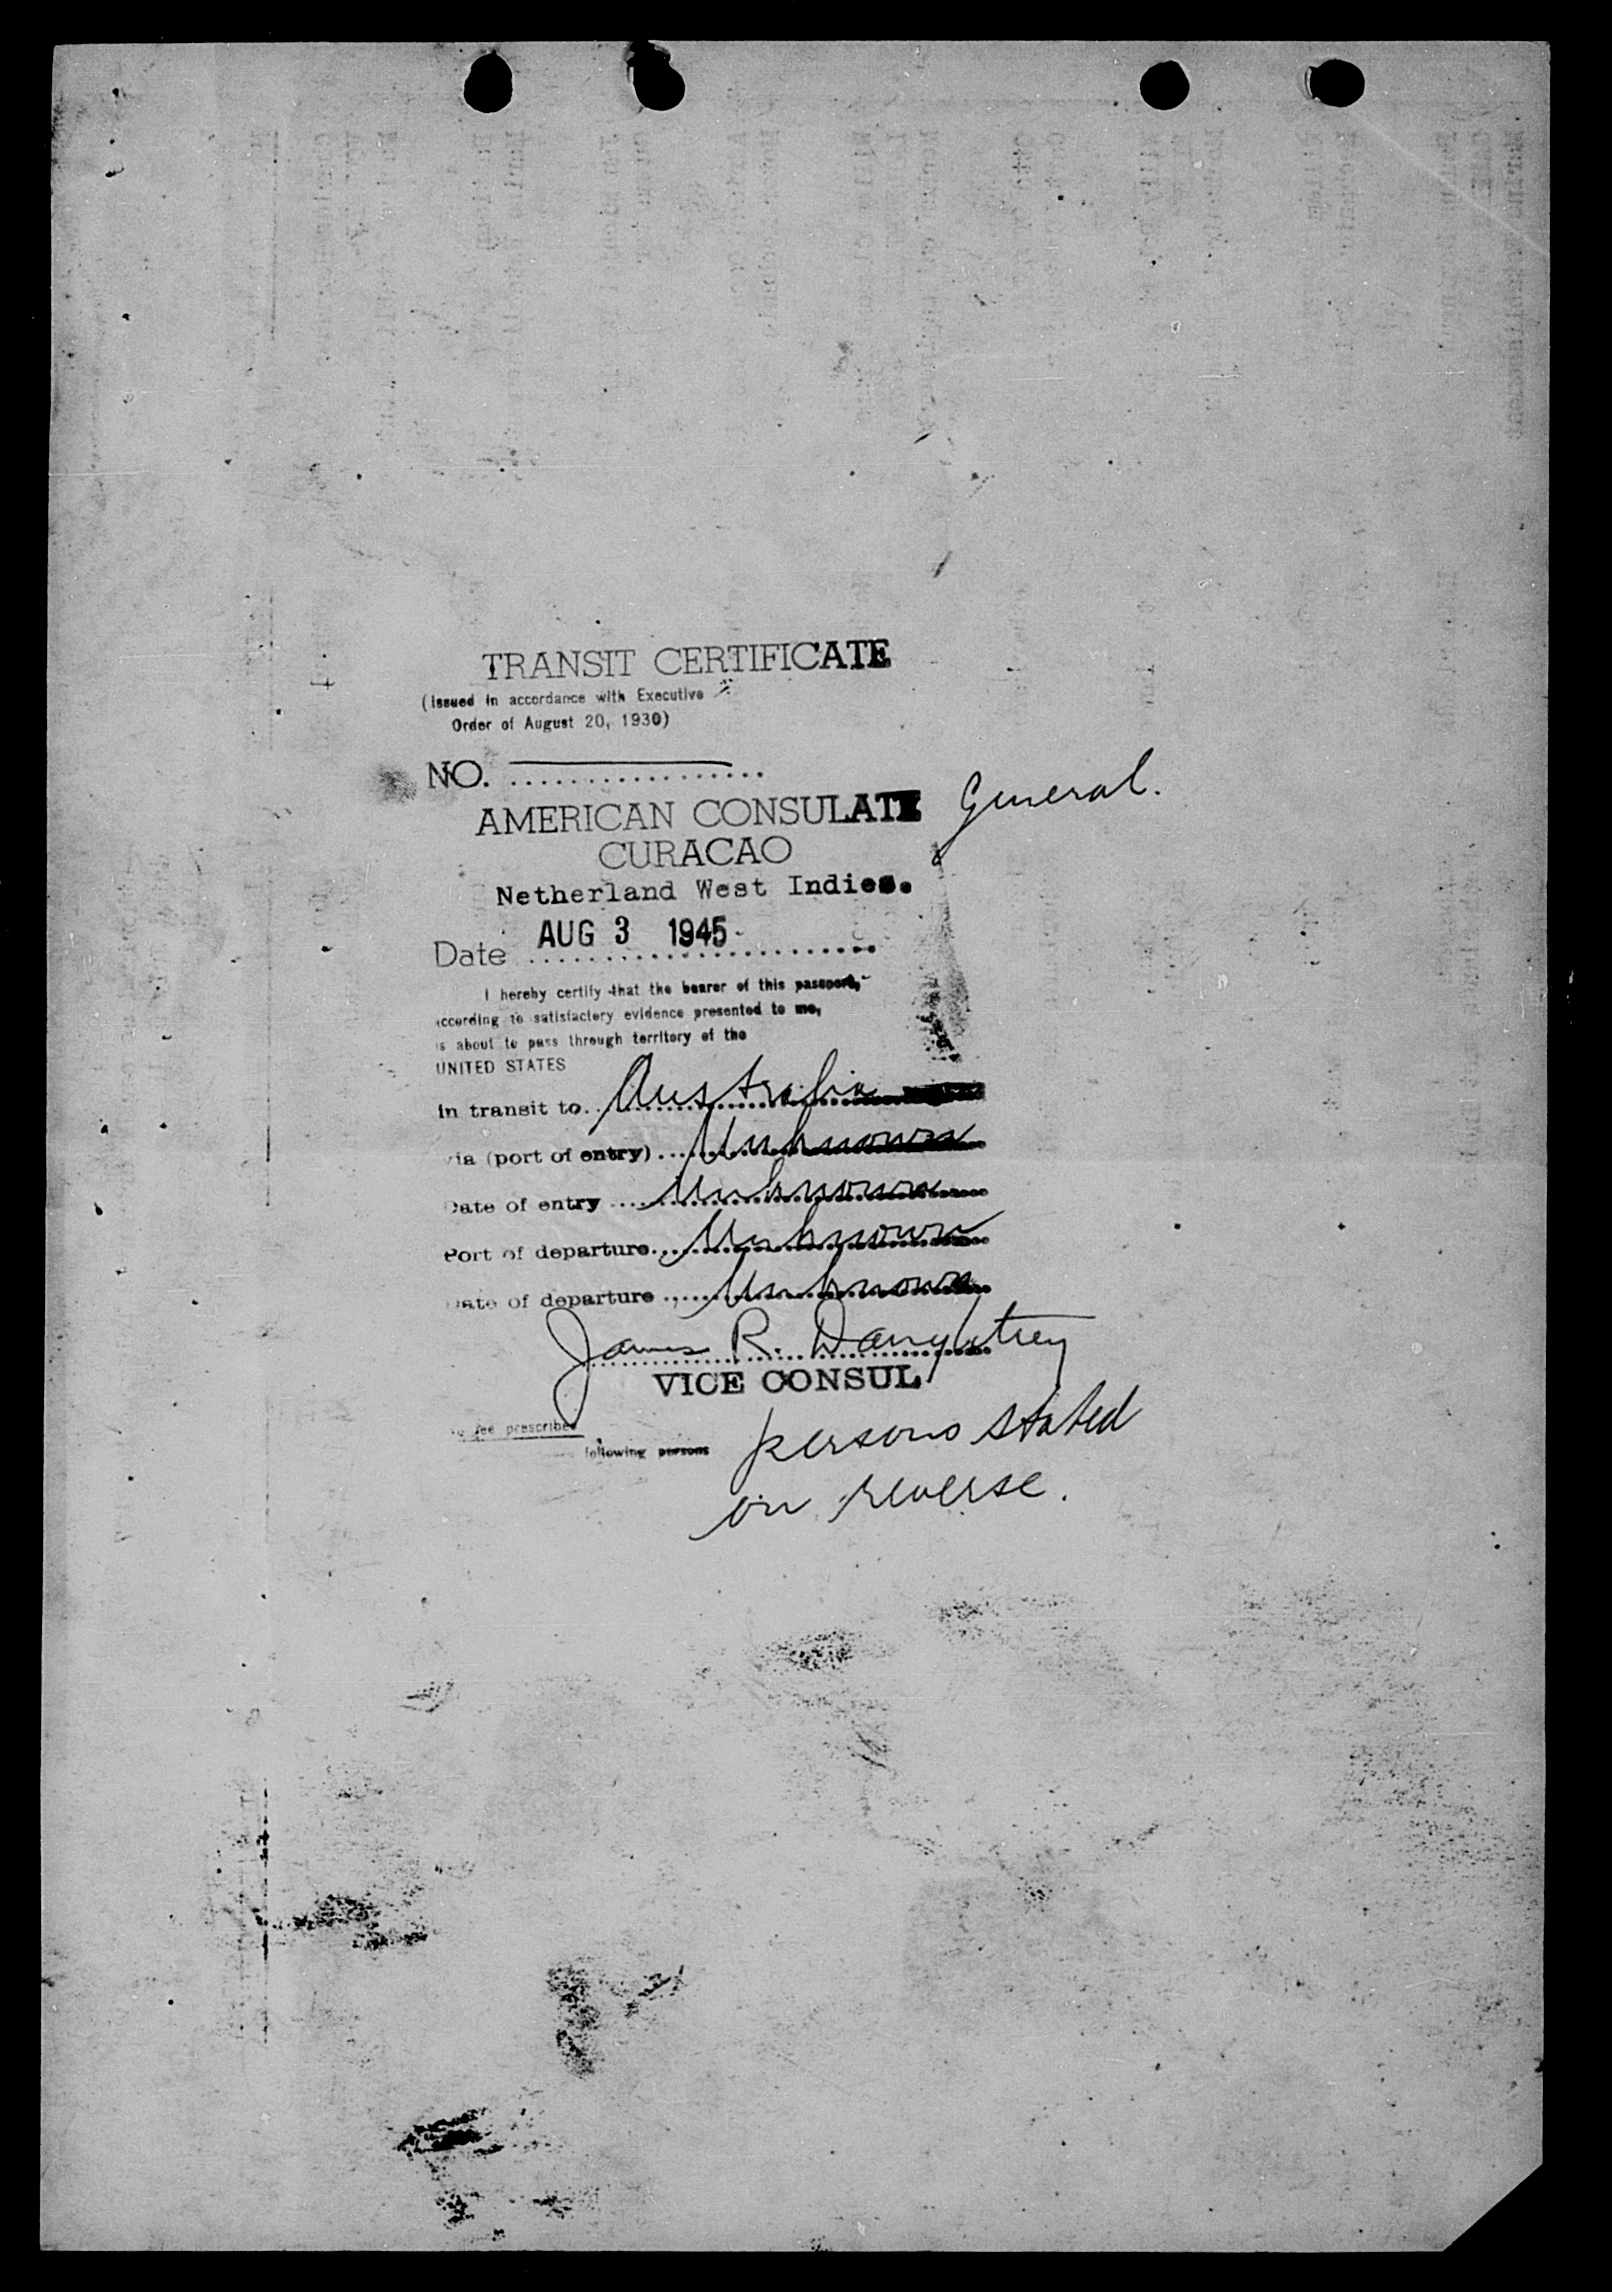 TRANSIT CERTIFICATE
(Issued in accordance with Executive
Order of August 20, 1930)
NO. ..................
AMERICAN CONSULATE General.
CURACAO
Netherland West Indies.
Date AUG 3 1945
I hereby certify that the bearer of this passport,
according to satisfactory evidence presented to me,
is about to pass through territory of the
UNITED STATES
in transit to Australia
via (port of entry) Unknown
Date of entry Unknown
Port of departure Unknown
Date of departure Unknown
James R. Daughtrey
VICE CONSUL
No fee prescribed
following persons persons stated
on reverse.